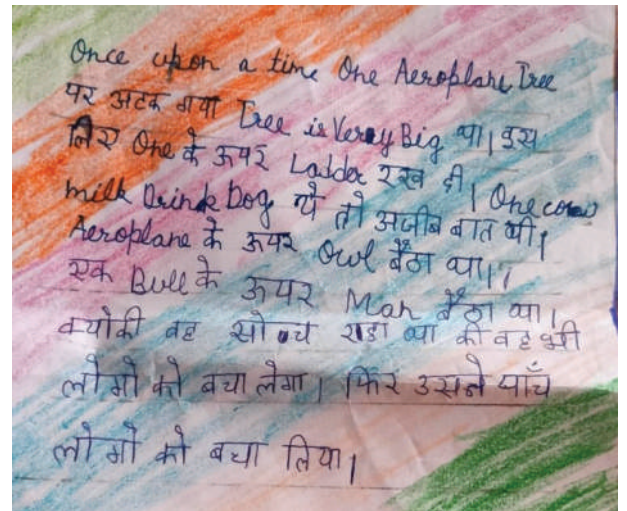 Once upon a time One Aeroplane Tree
पर अटक गया Tree is Veray Big था। इस
लिए One के ऊपर Ladder रख दी।
milk Drink Dog ये तो अजीब बात थी। One cow
Aeroplane के ऊपर Owl बैठा था।
एक Bull के ऊपर Man बैठा था।
क्योकी वह सोच राहा था की वह भी
लोगो को बचा लेगा। फिर उसने पाँच
लोगो को बचा लिया।